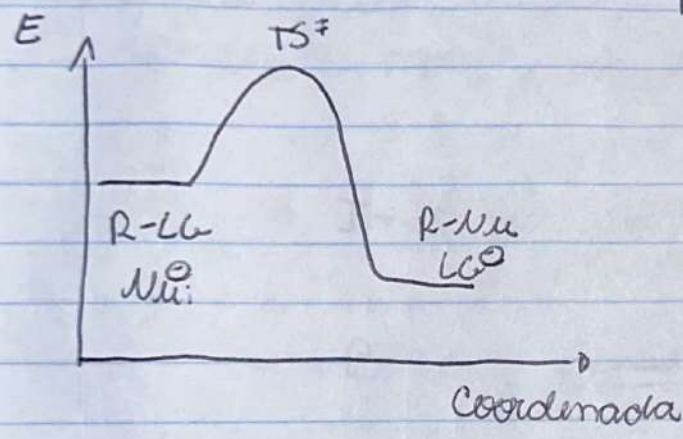 E
TS‡
R-LG
Nu:⊖
R-Nu
LG⊖
Coordenada